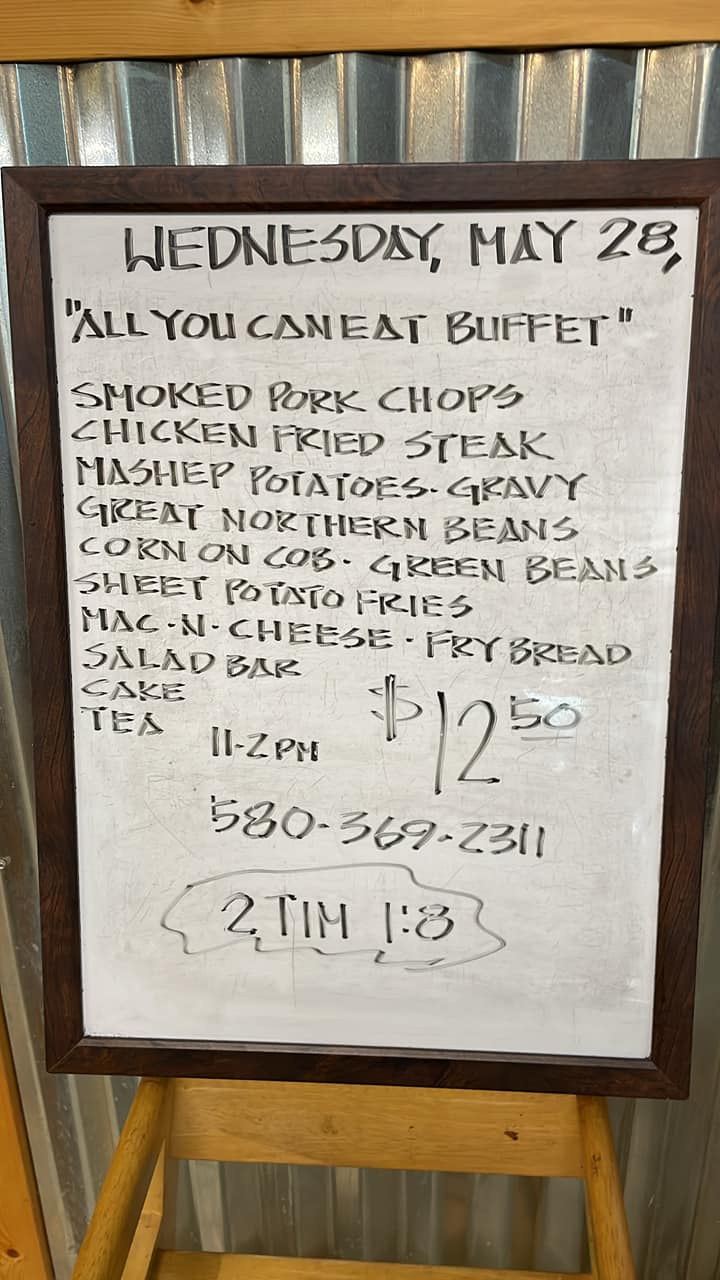 WEDNESDAY, MAY 28,
"ALL YOU CAN EAT BUFFET"
SMOKED PORK CHOPS
CHICKEN FRIED STEAK
MASHED POTATOES · GRAVY
GREAT NORTHERN BEANS
CORN ON COB · GREEN BEANS
SWEET POTATO FRIES
MAC·N·CHEESE · FRY BREAD
SALAD BAR
CAKE
TEA
11-2 PM $12 50
580-369-2311
2 TIM 1:8